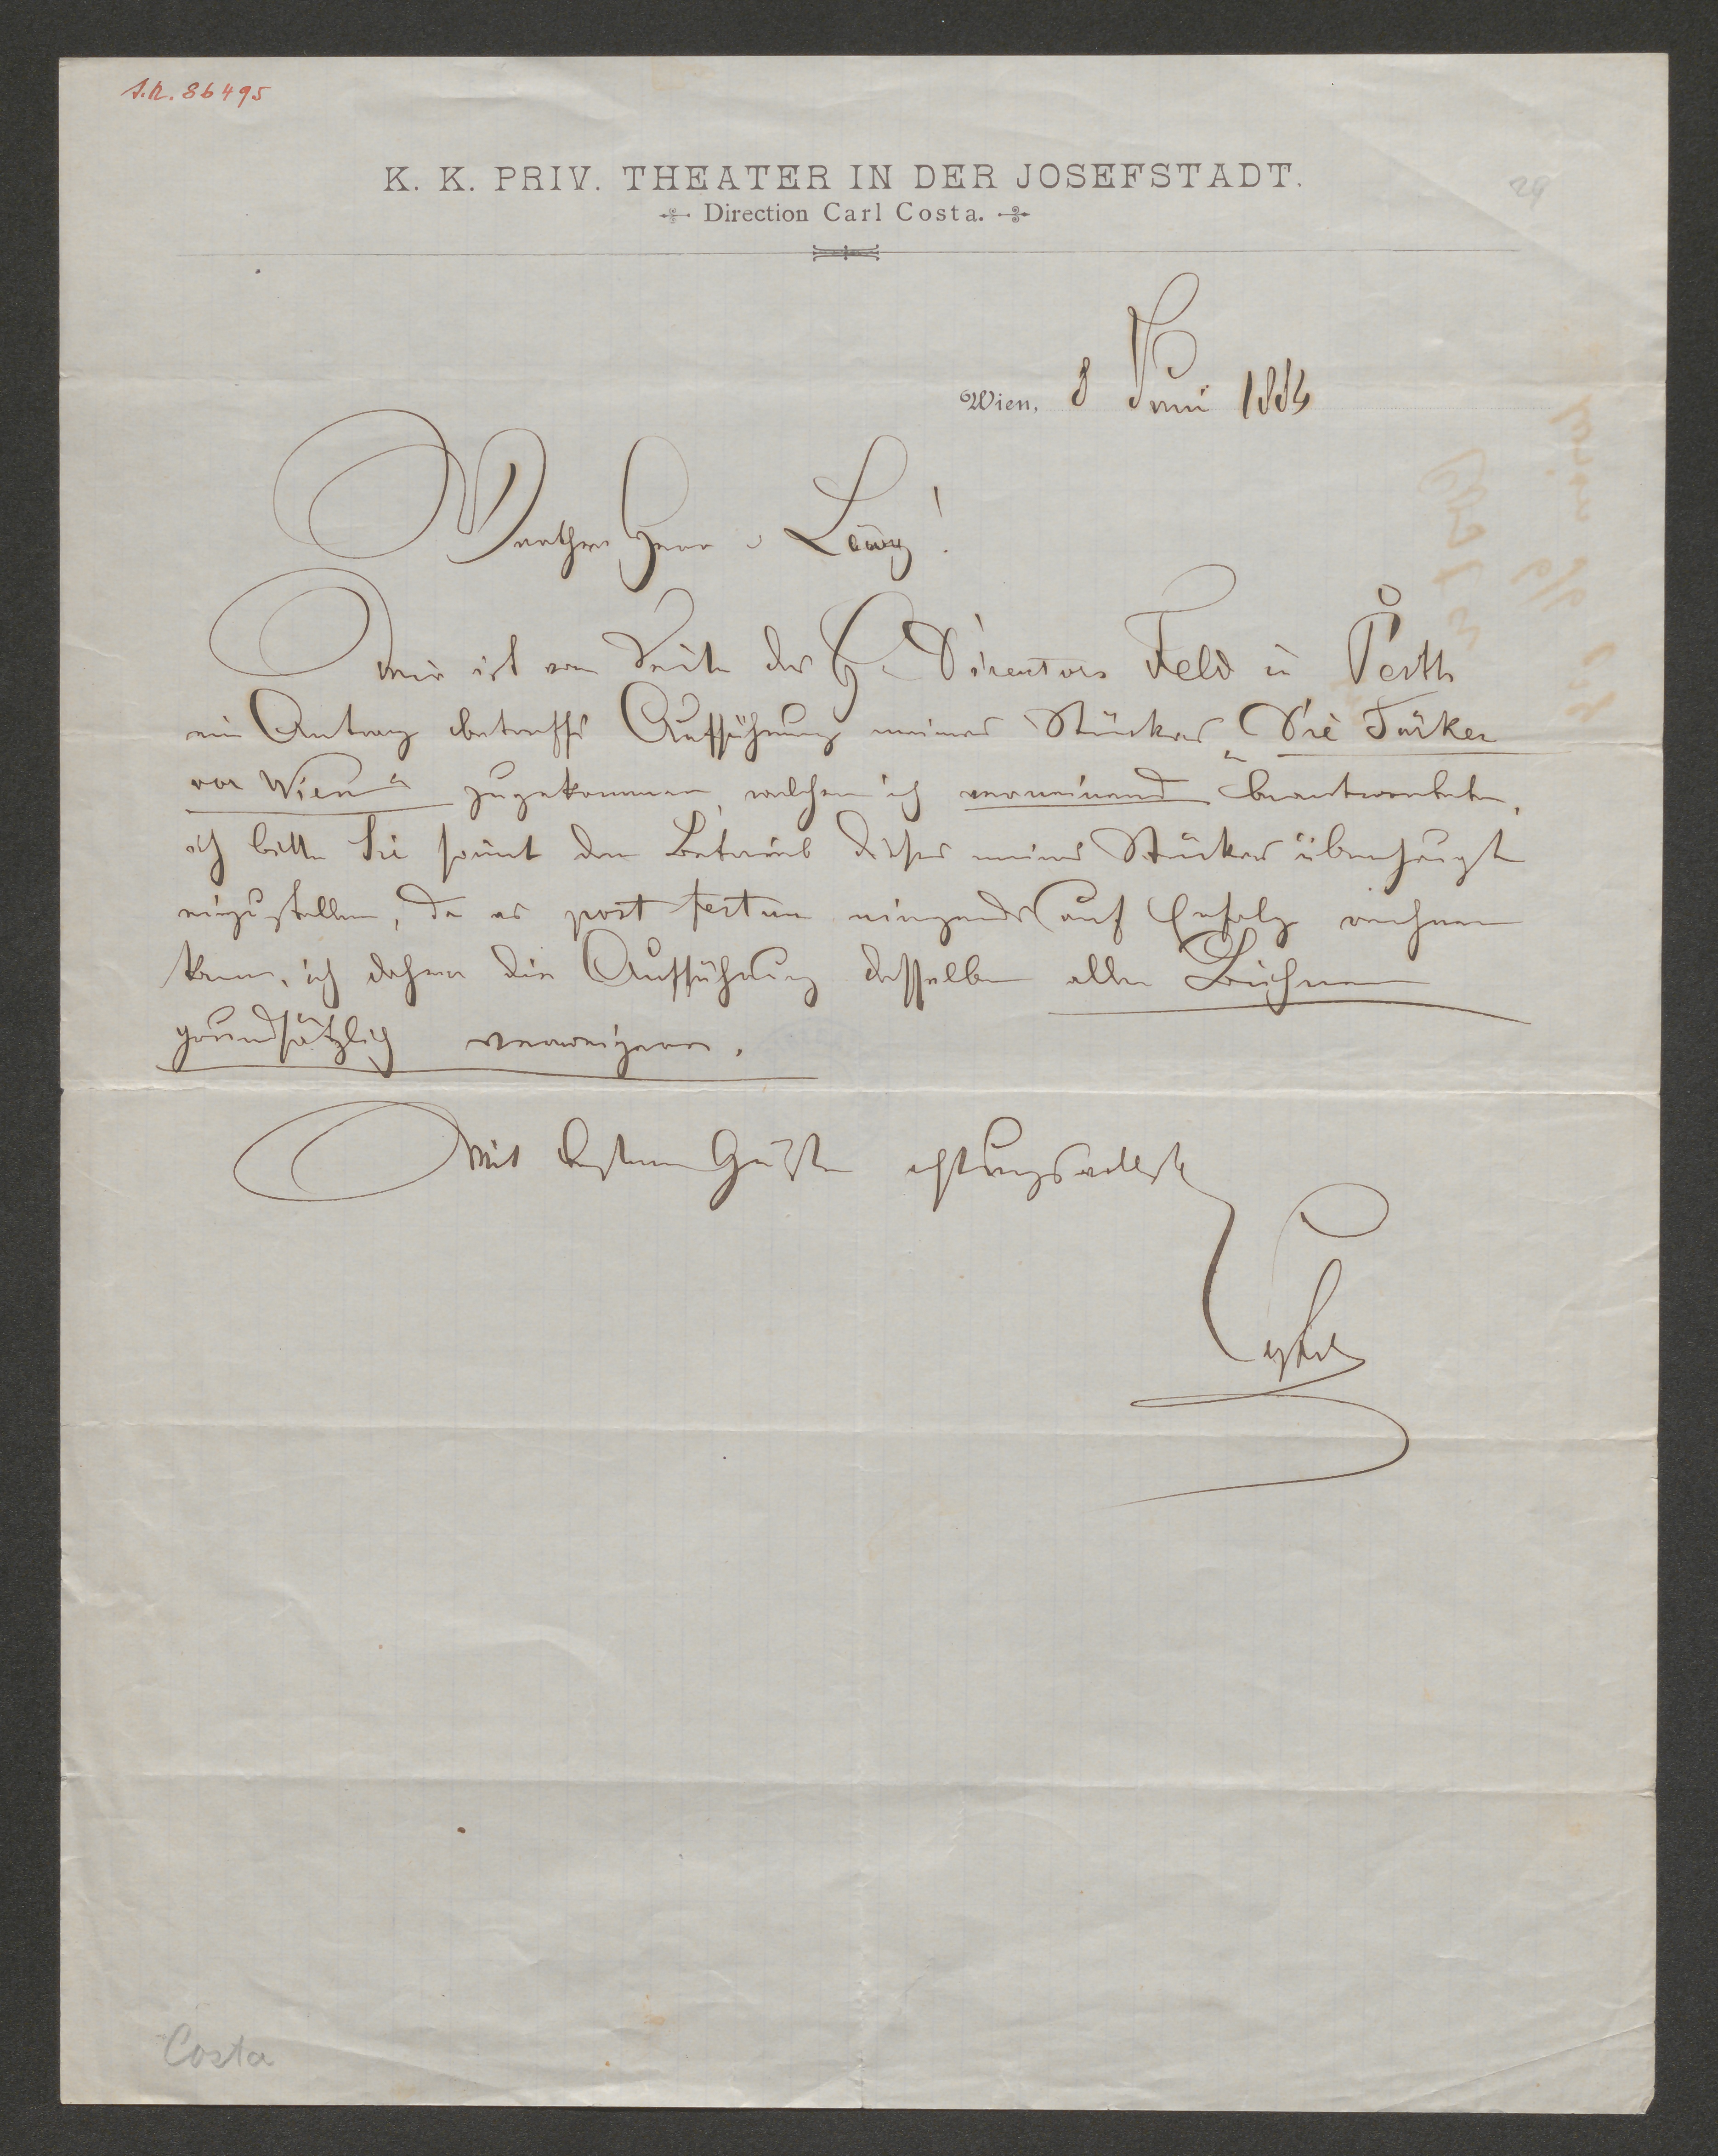 I.N. 86495
K. K. PRIV. THEATER IN DER JOSEFSTADT.
29
Direction Carl Costa.
Wien, 8 Juni 1884
Werther Herr v Löwy!
Mir ist von Seite des H. Directors Feld in Pesth
ein Antrag betreffs Aufführung meines Stückes „Die Türken
vor Wien“ zugekommen, welchen ich verneinend beantwortete,
ich bitte Sie somit den Betrieb dieses meines Stückes überhaupt
einzustellen, da es post festum nirgends auf Erfolg rechnen
kann, ich daher die Aufführung desselben allen Bühnen
grundsätzlich verweigere.
Mit besten Grüßen achtungsvollst
Costa
Costa